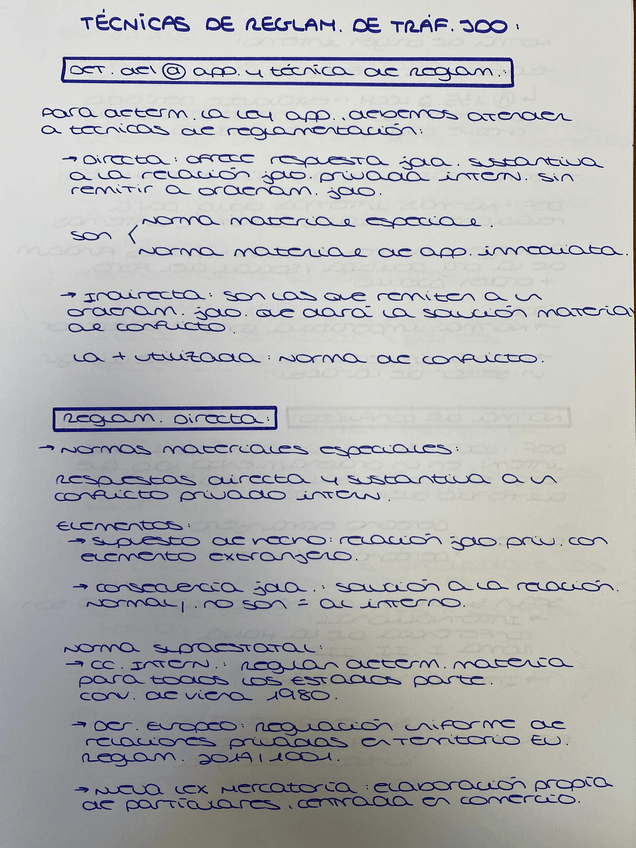 TÉCNICAS DE REGLAM. DE TRÁF. JDO:
DET. DEL @ APP. Y TÉCNICA DE REGLAM.:
Para determ. la ley app., debemos atender
a técnicas de reglamentación:
→ Directa: ofrece respuesta jda. sustantiva
a la relación jdo. privada intern. sin
remitir a ordenam. jdo.
Norma material especial.
Son
Norma material de app. inmediata.
→ Indirecta: son las que remiten a un
ordenam. jdo. que dará la solución material
de conflicto.
La + utilizada: Norma de conflicto.
REGLAM. DIRECTA:
→ Normas materiales especiales:
Respuestas directa y sustantiva a un
conflicto privado intern.
Elementos:
→ Supuesto de hecho: relación jdo. priv. con
elemento extranjero.
→ Consecuencia jda.: solución a la relación.
Normal, no son = al interno.
Norma supraestatal:
→ CC. Intern.: Regulan determ. materia
para todos los Estados parte.
Conv. de Viena 1980.
→ Der. Europeo: Regulación uniforme de
relaciones privadas en territorio EU.
Reglam. 2017/1001.
→ Nueva Lex Mercatoria: elaboración propia
de particulares, centrada en comercio.